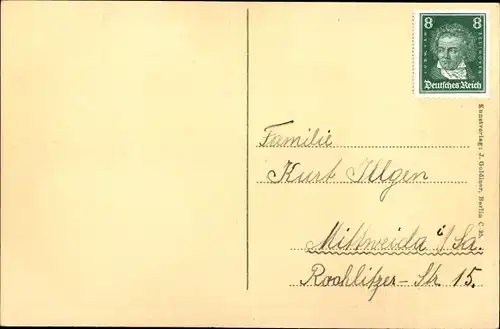 8 8
Deutsches Reich
Familie
Kurt Illgen
Mittweida i/Sa.
Rochlitzer-Str. 15.
Kunstverlag: J. Goldiner, Berlin C. 25.